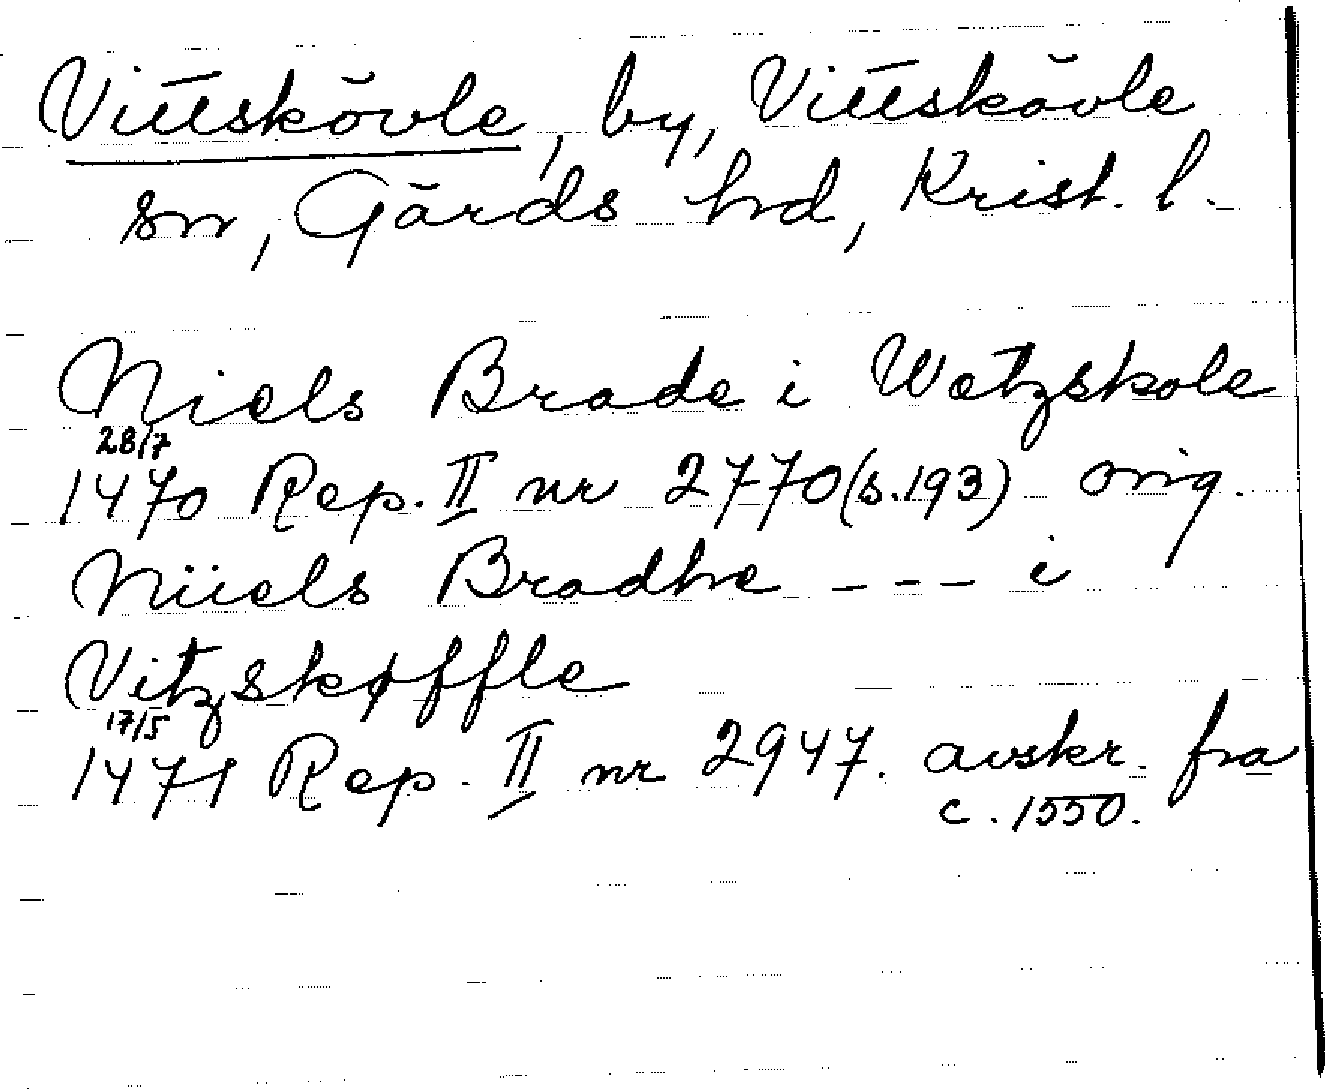 Vittskövle, by, Vittskövle
sn, Gärds hd, Krist. l.
Niels Brade i Wetzskole
28/7
1470 Rep. II nr 2770 (s.193) orig.
Niiels Bradhe --- i
Vitzskøffle
17/5
1471 Rep. II nr 2947. avskr. fra
c. 1550.